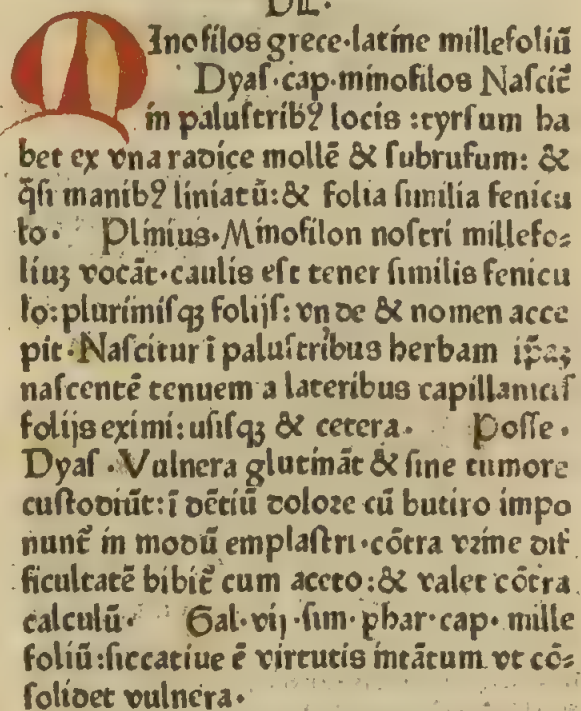 MInofilos grece·latine millefoliū
Dyaſ·cap·minofilos Naſcit̄
in paluſtrib⁹ locis :tyrſum ha
bet ex vna radice mollē & ſubrufum: &
q̄ſi manib⁹ liniatū:& folia ſimilia fenicu
lo· Plinius·Minofilon noſtri millefo⸗
liuꝫ vocāt·caulis eſt tener ſimilis fenicu
lo:plurimiſqꝫ folijſ: vnde & nomen acce
pit·Naſcitur ī paluſtribus herbam ip̄aꝫ
naſcentē tenuem a lateribus
folijs eximi: uſiſqꝫ & cetera· Poſſe·
Dyaſ·Vulnera glutināt & ſine tumore
cuſtodiūt:ī dētiū doloꝛe cū butiro impo
nunt̄ in modū emplaſtri·cōtra vꝛine dif
ficultatē bibit̄ cum aceto:& valet cōtra
calculū· Gal·vij·ſim·phar·cap·mille
foliū:ſiccatiue ē virtutis intātum vt cō⸗
ſolidet vulnera·